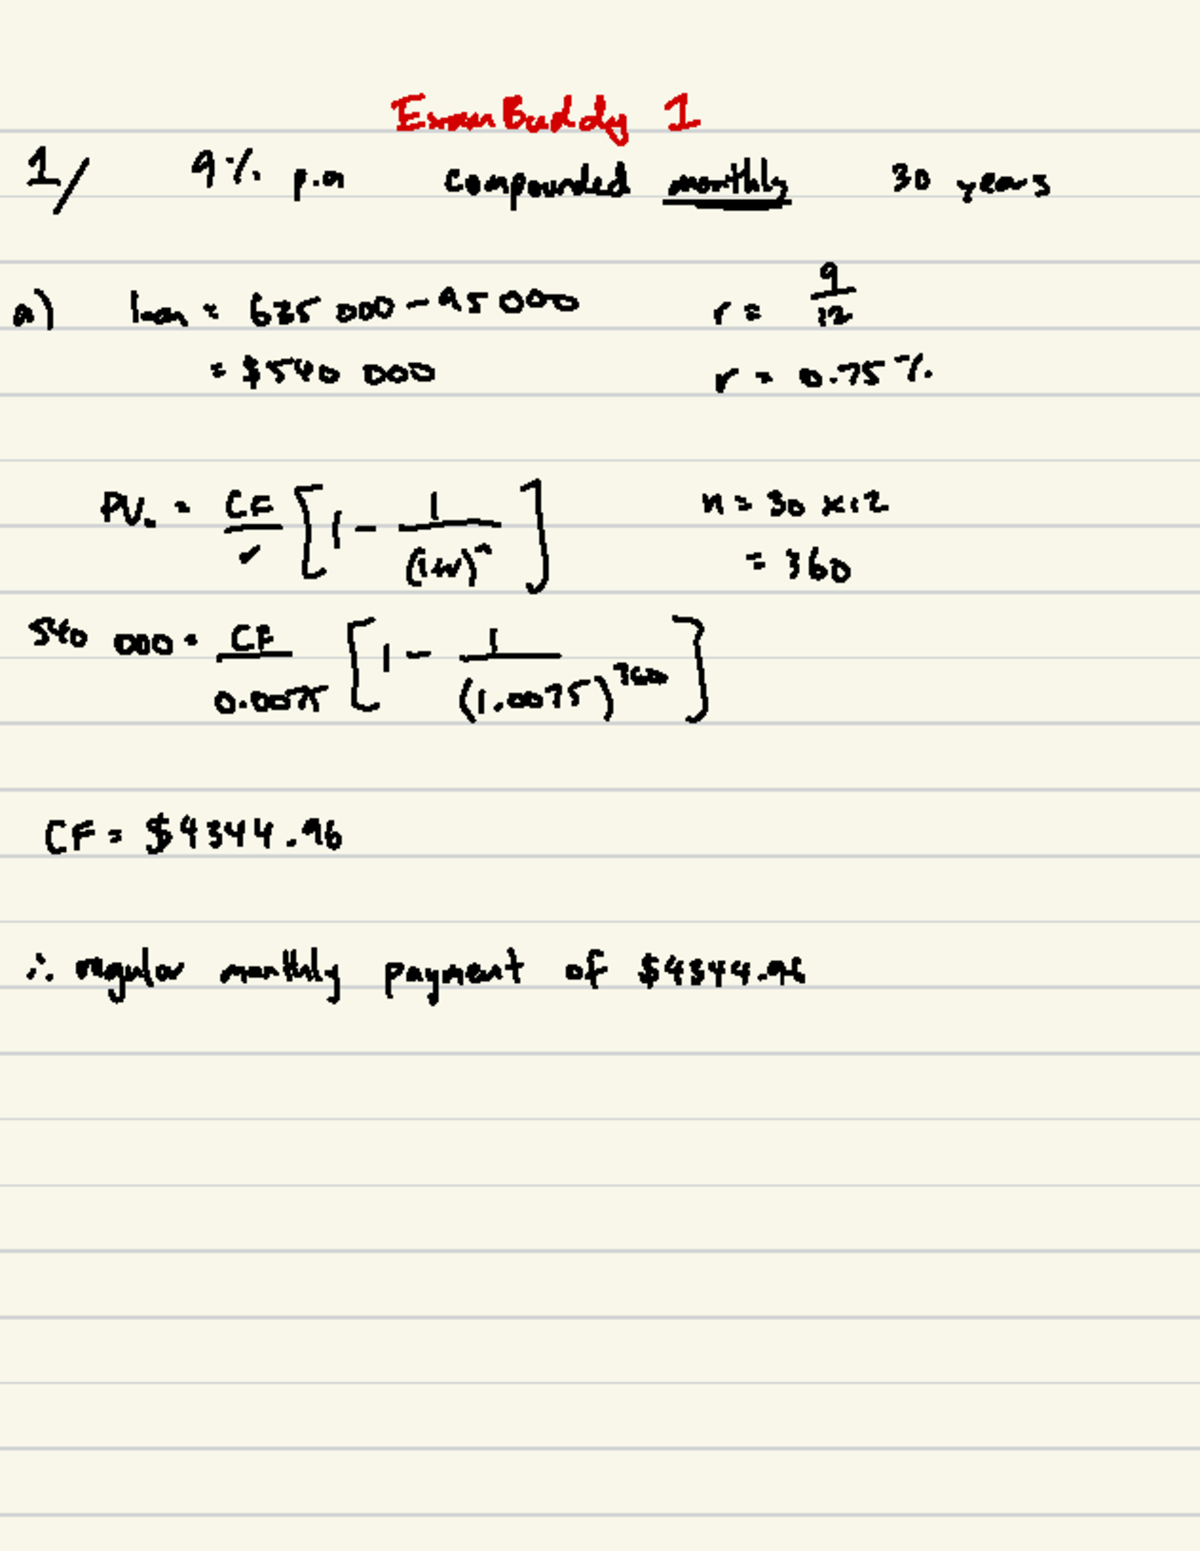 ExamBuddy 1
1/ 9% p.a compounded monthly 30 years
a) loan = 635 000 - 95 000 r = 9/12
= $540 000 r = 0.75%
PV₀ = CF/r [1 - 1/(1+r)^n] n = 30 x 12
= 360
540 000 = CF/0.0075 [1 - 1/(1.0075)^360]
CF = $4344.96
∴ regular monthly payment of $4344.96